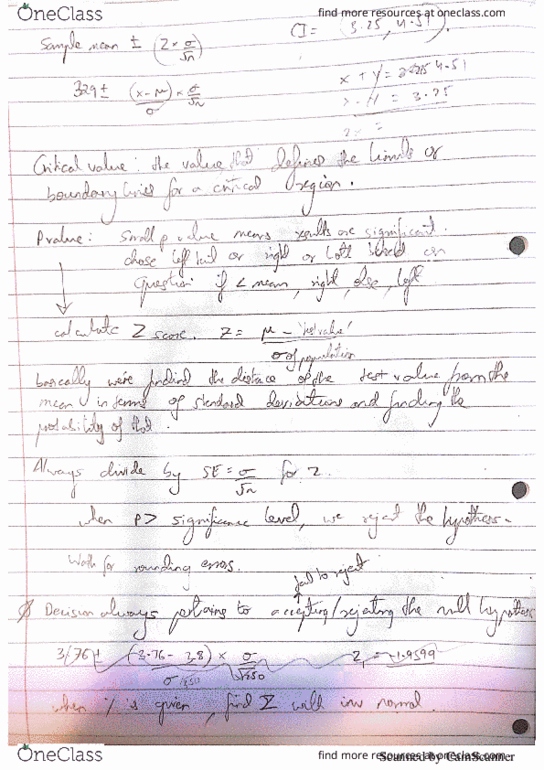 OneClass
find more resources at oneclass.com
CI = (3.25, 4.51).
Sample mean ± (Z × σ/√n)
x + y = 4.51
329 ± (x-μ)/σ × σ/√n
x - y = 3.25
Critical value: the value that defines the limits or
boundary lines for a critical region.
P value: Small p value means results are significant.
chose left tail or right or both based on
question if < mean, right, else, left
calculate Z score. Z = μ - 'test value' / σ of population
basically we're findind the distance of the test value from the
mean in terms of standard deviations and finding the
probability of that.
Always divide by SE = σ/√n for Z.
when P > significance level, we reject the hypothesis.
Watch for rounding errors.
fail to reject
Decision always pertains to accepting/rejecting the null hypothesis
3.76 ± (3.76 - 3.8) × σ/√250
Z = -1.9599
when % is given, find Z with inv normal.
OneClass
find more resources at oneclass.com
Scanned by CamScanner